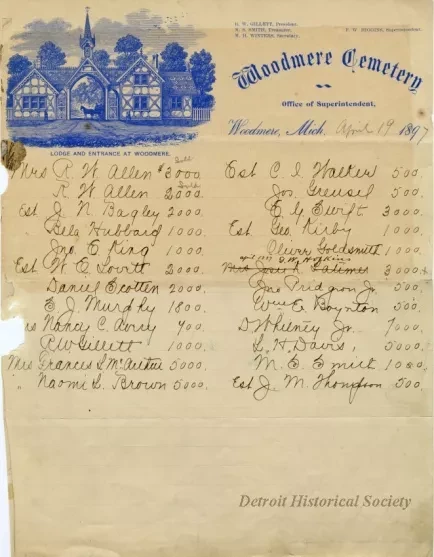 R. W. GILLETT, President.
E. S. SMITH, Treasurer.
W. H. WINTERS, Secretary.
F. W. HIGGINS, Superintendent.
Woodmere Cemetery
Office of Superintendent,
Woodmere, Mich. April 19 1897
LODGE AND ENTRANCE AT WOODMERE.
Mrs R. W. Allen $3000
R. W. Allen 2000
Est J. N. Bagley 2000.
Bela Hubbard 1000
Jno E King 1000.
Est W. E. 2000
Daniel Scotten 2000.
E. J. Murphy 1800.
Mrs Nancy C. Avery 400.
R W Gillett 1000.
Mrs Francis S. McArthur 5000.
" Naomi L. Brown 5000.
Est C. I. Walker 500.
Jos. Greusel 500.
E. Y. Swift 3000.
Est Geo. Kirby 1000.
Oliver Goldsmith 1000.
3000
Jno Pridgeon Jr. 500.
Wm E Boynton 500.
D Whitney Jr. 7000
S. H. Davis, 5000
M. E. Smith 1000.
Est J. M. Thompson 500.
Detroit Historical Society